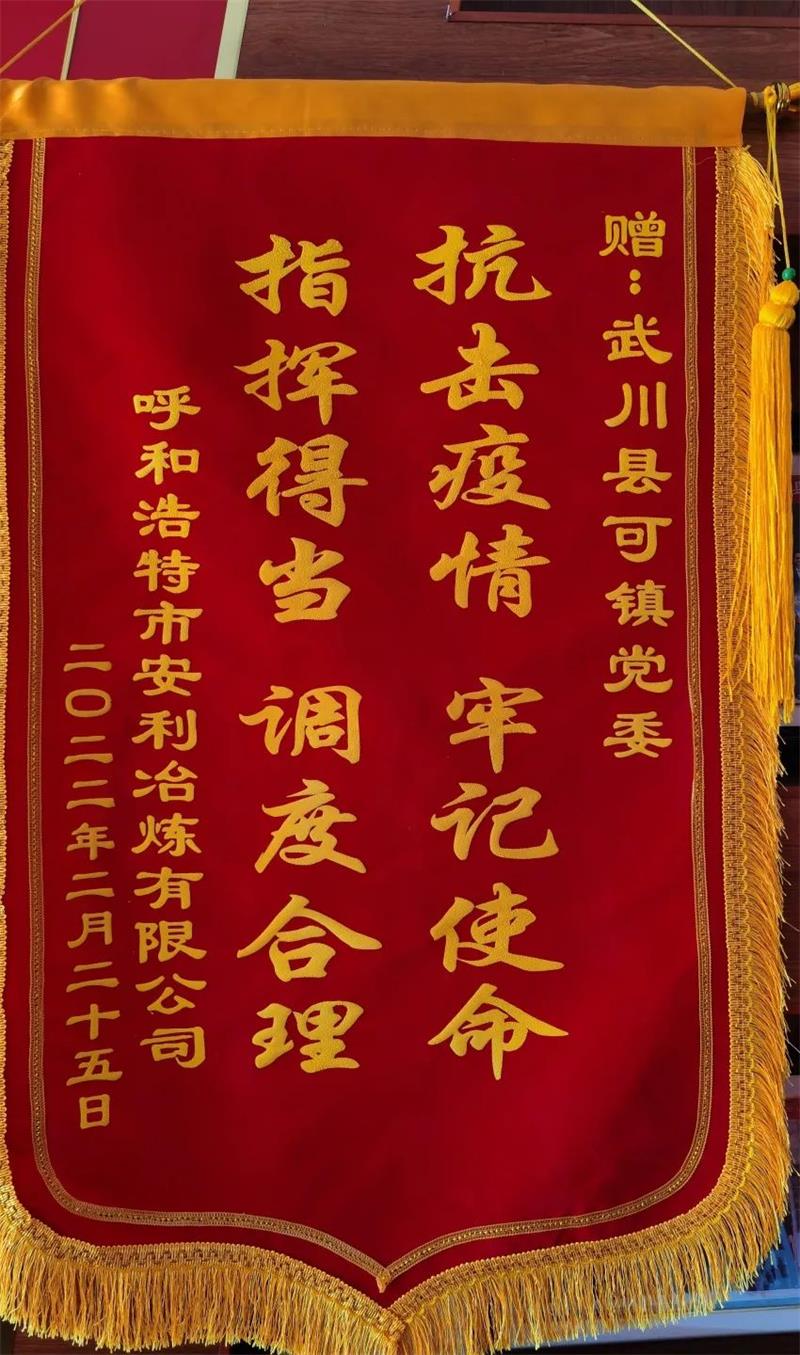 赠：武川县可镇党委
抗击疫情 牢记使命
指挥得当 调度合理
呼和浩特市安利冶炼有限公司
二〇二二年二月二十五日